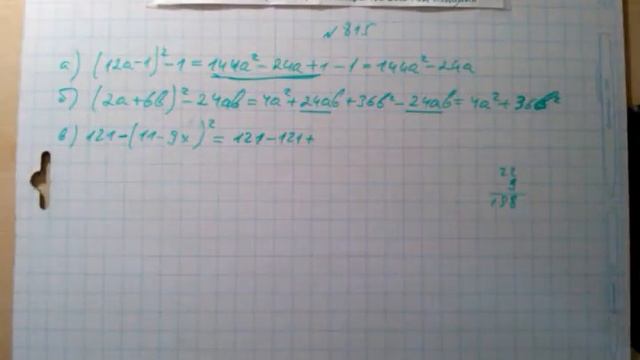 № 815
а) (12a-1)² - 1 = 144a² - 24a + 1 - 1 = 144a² - 24a
б) (2a+6b)² - 24ab = 4a² + 24ab + 36b² - 24ab = 4a² + 36b²
в) 121 - (11 - 9x)² = 121 - 121 +
22
9
198